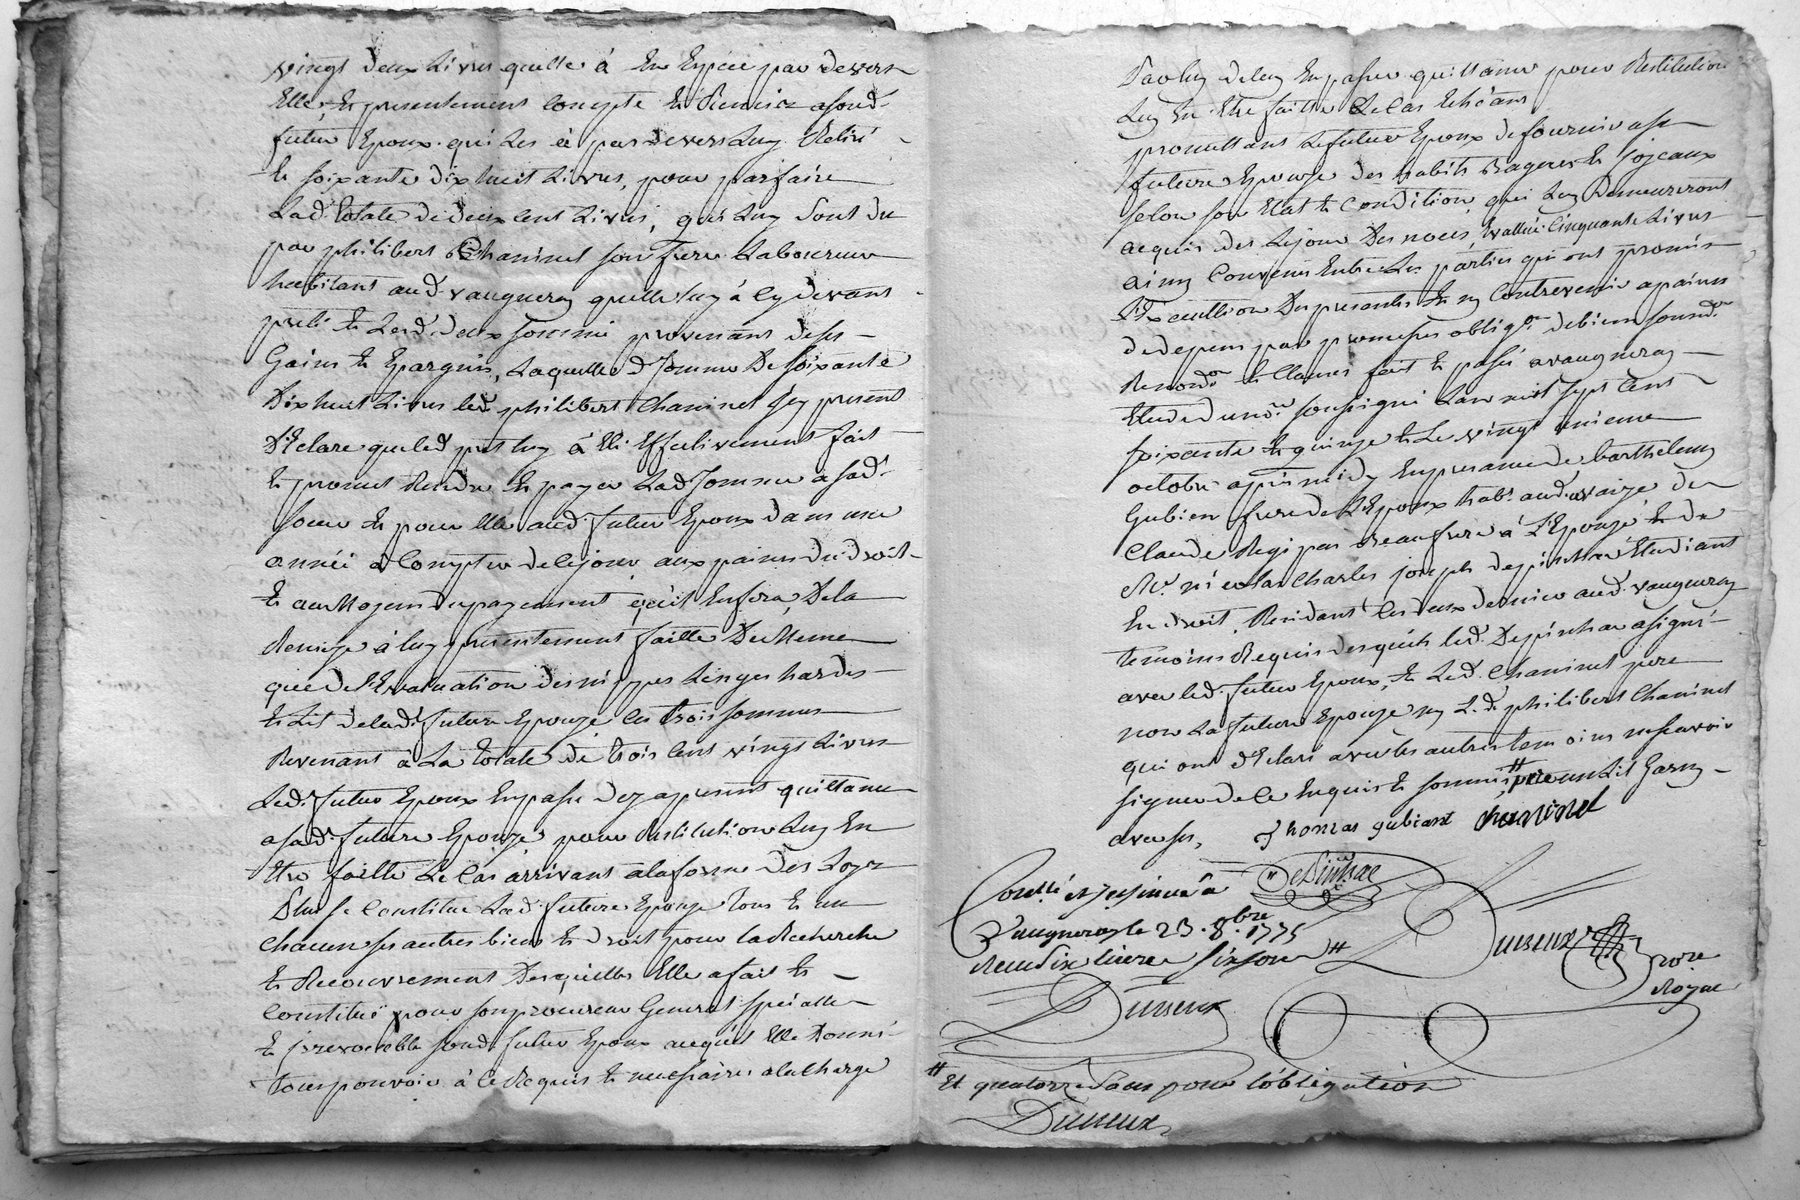 vingt deux Livres quelle à En Espece par devers
Elle, Et presentement Compté Et Remis a sond.
futur Epoux qui Les à par devers Luy Retiré
Et soixante dix huit Livres, pour parfaire
Lad. totale de deux Cent Livres, qui Luy sont du
par philibert Chaninet son frere Laboureur
habitant aud. vaugneray quelle luy à Cy devant
preté Et Lesd. deux somme provenant de ses
Gains Et Epargnes, Laquelle d. somme De soixante
Dix huit Livres led. philibert Chaninet Icy present
Déclare que led. pret luy à Eté Effectivement fait
Et promet Rendre Et payer Lad. somme a sad.
soeur Et pour Elle aud. futur Epoux dans une
année à Compter de Ce jour aux peines de droit
Et au Moyen du payement qu'il En fera, De la
Remise à luy presentement faitte De Meme
que de l'Evaluation des nippes Linges hardes
Et Lit de lad. future Epouze les trois sommes
Revenant à La totale de trois Cent vingt Livres
Led. futur Epoux En passe dez apresent quittance
a sad. future Epouze pour Restitution Luy En
Etre faitte Le Cas arrivant a la forme des Loyx
Plus se Constitue Lad. future Epouze tous Et un
Chacun ses autres biens Et droit pour la Recherche
Et Recouvrement Desquelles Elle a fait Et
Constitué pour son procureur General spécialle
Et jrrevocable sond. futur Epoux auquel Elle Donne
tous pouvoir à Ce Requis Et necessaires a la Charge
Par luy de luy En passer quittance pour Restitution
Luy En Etre faitte Le Cas Echéant
promettant Le futur Epoux de fournir a sa
future Epouze des habits Bagues Et Joyeaux
selon son Etat Et Condition, qui Luy Demeureront
acquis des Le jour Des noces, Evallué Cinquante Livres
ainsy Convenu Entre Les parties qui ont promis
L'Execution Des presentes Et ny Contrevenir a peines
de depens par promesses obligon. de biens soumon.
Renonon. Et Clauses fait Et passé a vaugneray
Etude du nore. soussigné L'an mil sept Cent
soixante Et quinze Et Le vingt unieme
octobre apres midy En presence de barthelemy
Gubien frere de L'Epoux habt. aud. vaize de
Claude Regipas Beaufrere à L'Epouze Et de
Mr. nicolas Charles joseph depinhac Etudiant
En droit, Residant les deux dernier aud. vaugneray
temoins Requis desquels led. Depinhac a signé
avec led. futur Epoux, Et Led. Chaninet pere
non La future Epouze ny Led. philibert Chaninet
qui ont déclaré avec les autres temoins ne scavoir
signer de Ce Enquis Et sommés # pere un Lit Garny
avec ses,
thomas gubiant chaninet
DePinhac
Conllé et Jnsinué à
Vaugneray le 23. 8.bre 1775
Reçu dix livres six sous #
Dusseux
Dusseux nore
Royal
# Et quatorze sous pour l'obligation
Dusseux